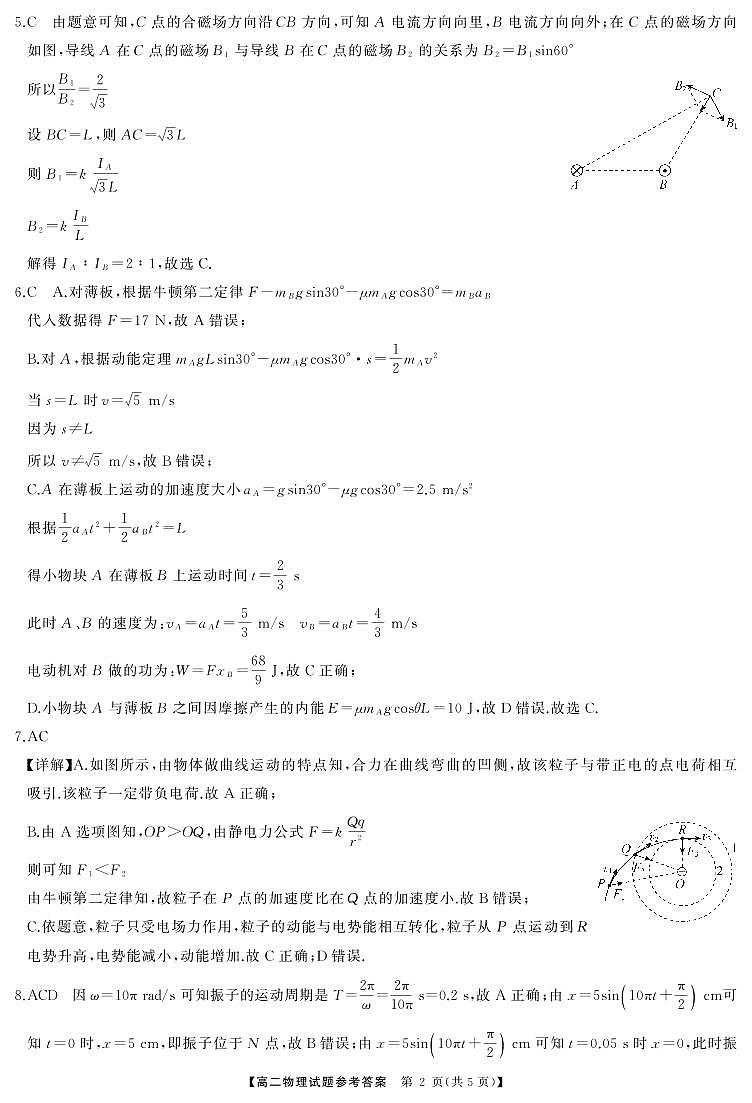 5.C 由题意可知,C 点的合磁场方向沿CB 方向,可知 A 电流方向向里,B 电流方向向外;在 C 点的磁场方向
如图,导线 A 在 C 点的磁场 B₁ 与导线 B 在 C 点的磁场 B₂ 的关系为 B₂=B₁sin60°
所以 B₁/B₂=2/√3
设 BC=L,则 AC=√3L
则 B₁=k I_A/(√3L)
B₂=k I_B/L
解得 I_A∶I_B=2∶1,故选 C.
B₂ C B₁ A B
6.C A.对薄板,根据牛顿第二定律 F-m_Bgsin30°-μm_Agcos30°=m_Ba_B
代入数据得 F=17 N,故 A 错误;
B.对 A,根据动能定理 m_AgLsin30°-μm_Agcos30°·s=1/2 m_Av²
当 s=L 时 v=√5 m/s
因为 s≠L
所以 v≠√5 m/s,故 B 错误;
C.A 在薄板上运动的加速度大小 a_A=gsin30°-μgcos30°=2.5 m/s²
根据 1/2 a_At²+1/2 a_Bt²=L
得小物块 A 在薄板 B 上运动时间 t=2/3 s
此时 A、B 的速度为:v_A=a_At=5/3 m/s v_B=a_Bt=4/3 m/s
电动机对 B 做的功为:W=Fx_B=68/9 J,故 C 正确;
D.小物块 A 与薄板 B 之间因摩擦产生的内能 E=μm_AgcosθL=10 J,故 D 错误.故选 C.
7.AC
【详解】A.如图所示,由物体做曲线运动的特点知,合力在曲线弯曲的凹侧,故该粒子与带正电的点电荷相互
吸引.该粒子一定带负电荷.故 A 正确;
B.由 A 选项图知,OP>OQ,由静电力公式 F=k Qq/r²
则可知 F₁<F₂
由牛顿第二定律知,故粒子在 P 点的加速度比在 Q 点的加速度小.故 B 错误;
C.依题意,粒子只受电场力作用,粒子的动能与电势能相互转化,粒子从 P 点运动到 R
电势升高,电势能减小,动能增加.故 C 正确;D 错误.
R Q P O 2
8.ACD 因 ω=10π rad/s 可知振子的运动周期是 T=2π/ω=2π/10π s=0.2 s,故 A 正确;由 x=5sin(10πt+π/2) cm可
知 t=0 时,x=5 cm,即振子位于 N 点,故 B 错误;由 x=5sin(10πt+π/2) cm 可知 t=0.05 s 时 x=0,此时振
【高二物理试题参考答案 第 2 页(共 5 页)】